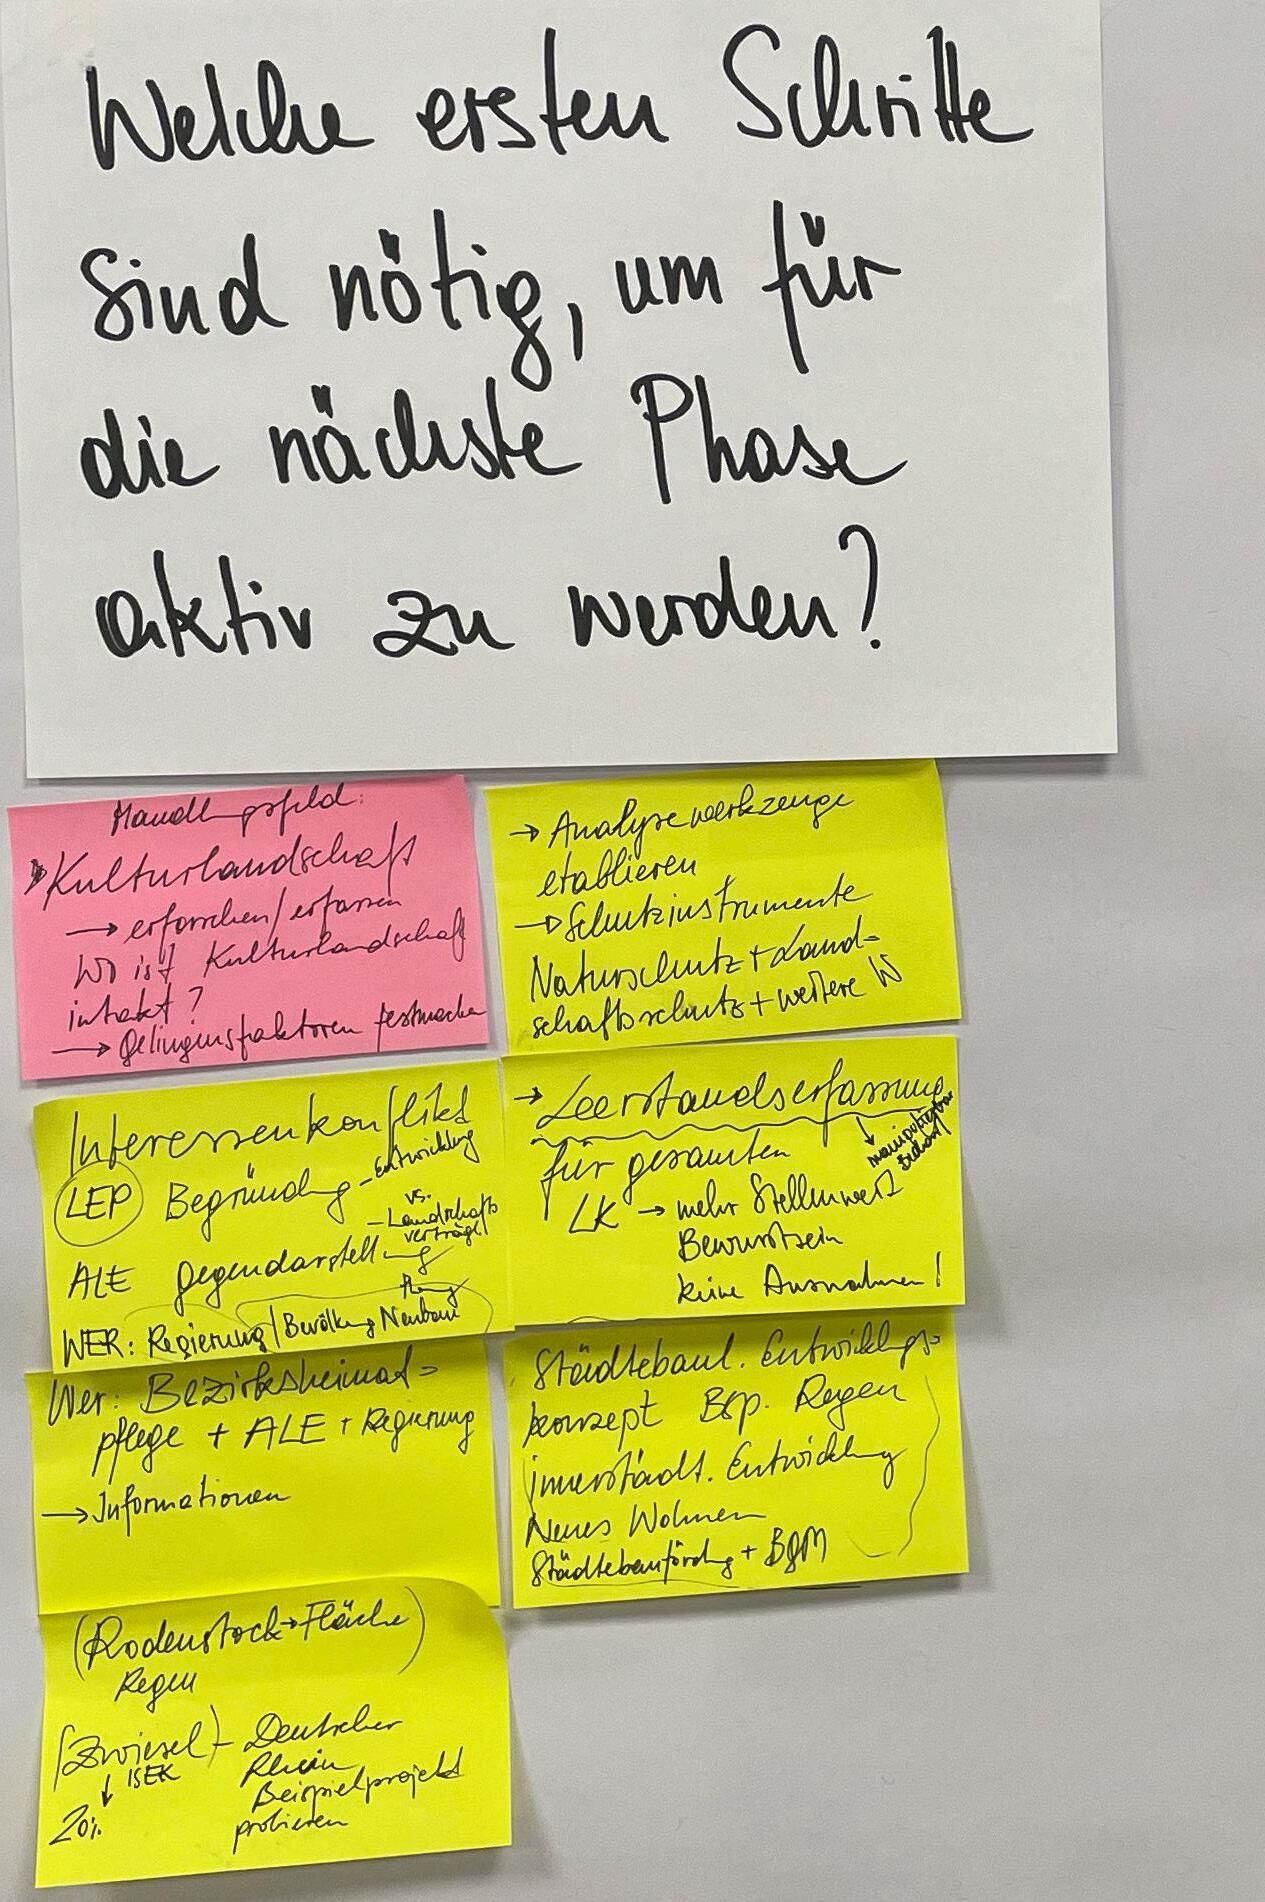 Welche ersten Schritte
sind nötig, um für
die nächste Phase
aktiv zu werden?
Handlungsfeld:
Kulturlandschaft
→ erforschen/erfassen
Wo ist Kulturlandschaft
intakt?
→ Gelingensfaktoren festmachen
→ Analysewerkzeuge
etablieren
→ Schutzinstrumente
Naturschutz + Land-
schaftsschutz + weitere W
Interessenkonflikt
LEP Begründung - Entwicklung
vs.
- Landschafts
verträgl.
ALE Gegendarstellung
WER: Regierung / Bevölkerung Neubau
→ Leerstandserfassung
für gesamten
LK → mehr Stellenwert
Bewusstsein
keine Ausnahmen!
Wer: Bezirksheimat-
pflege + ALE + Regierung
→ Informationen
Städtebaul. Entwicklgs-
konzept Bsp. Regen
innerstädt. Entwicklung
Neues Wohnen
Städtebauförderg +
(Rodenstock → Fläche)
Regen
(Zwiesel) - Deutscher
↓ ISEK Rhein
Beispielprojekt
20% probieren